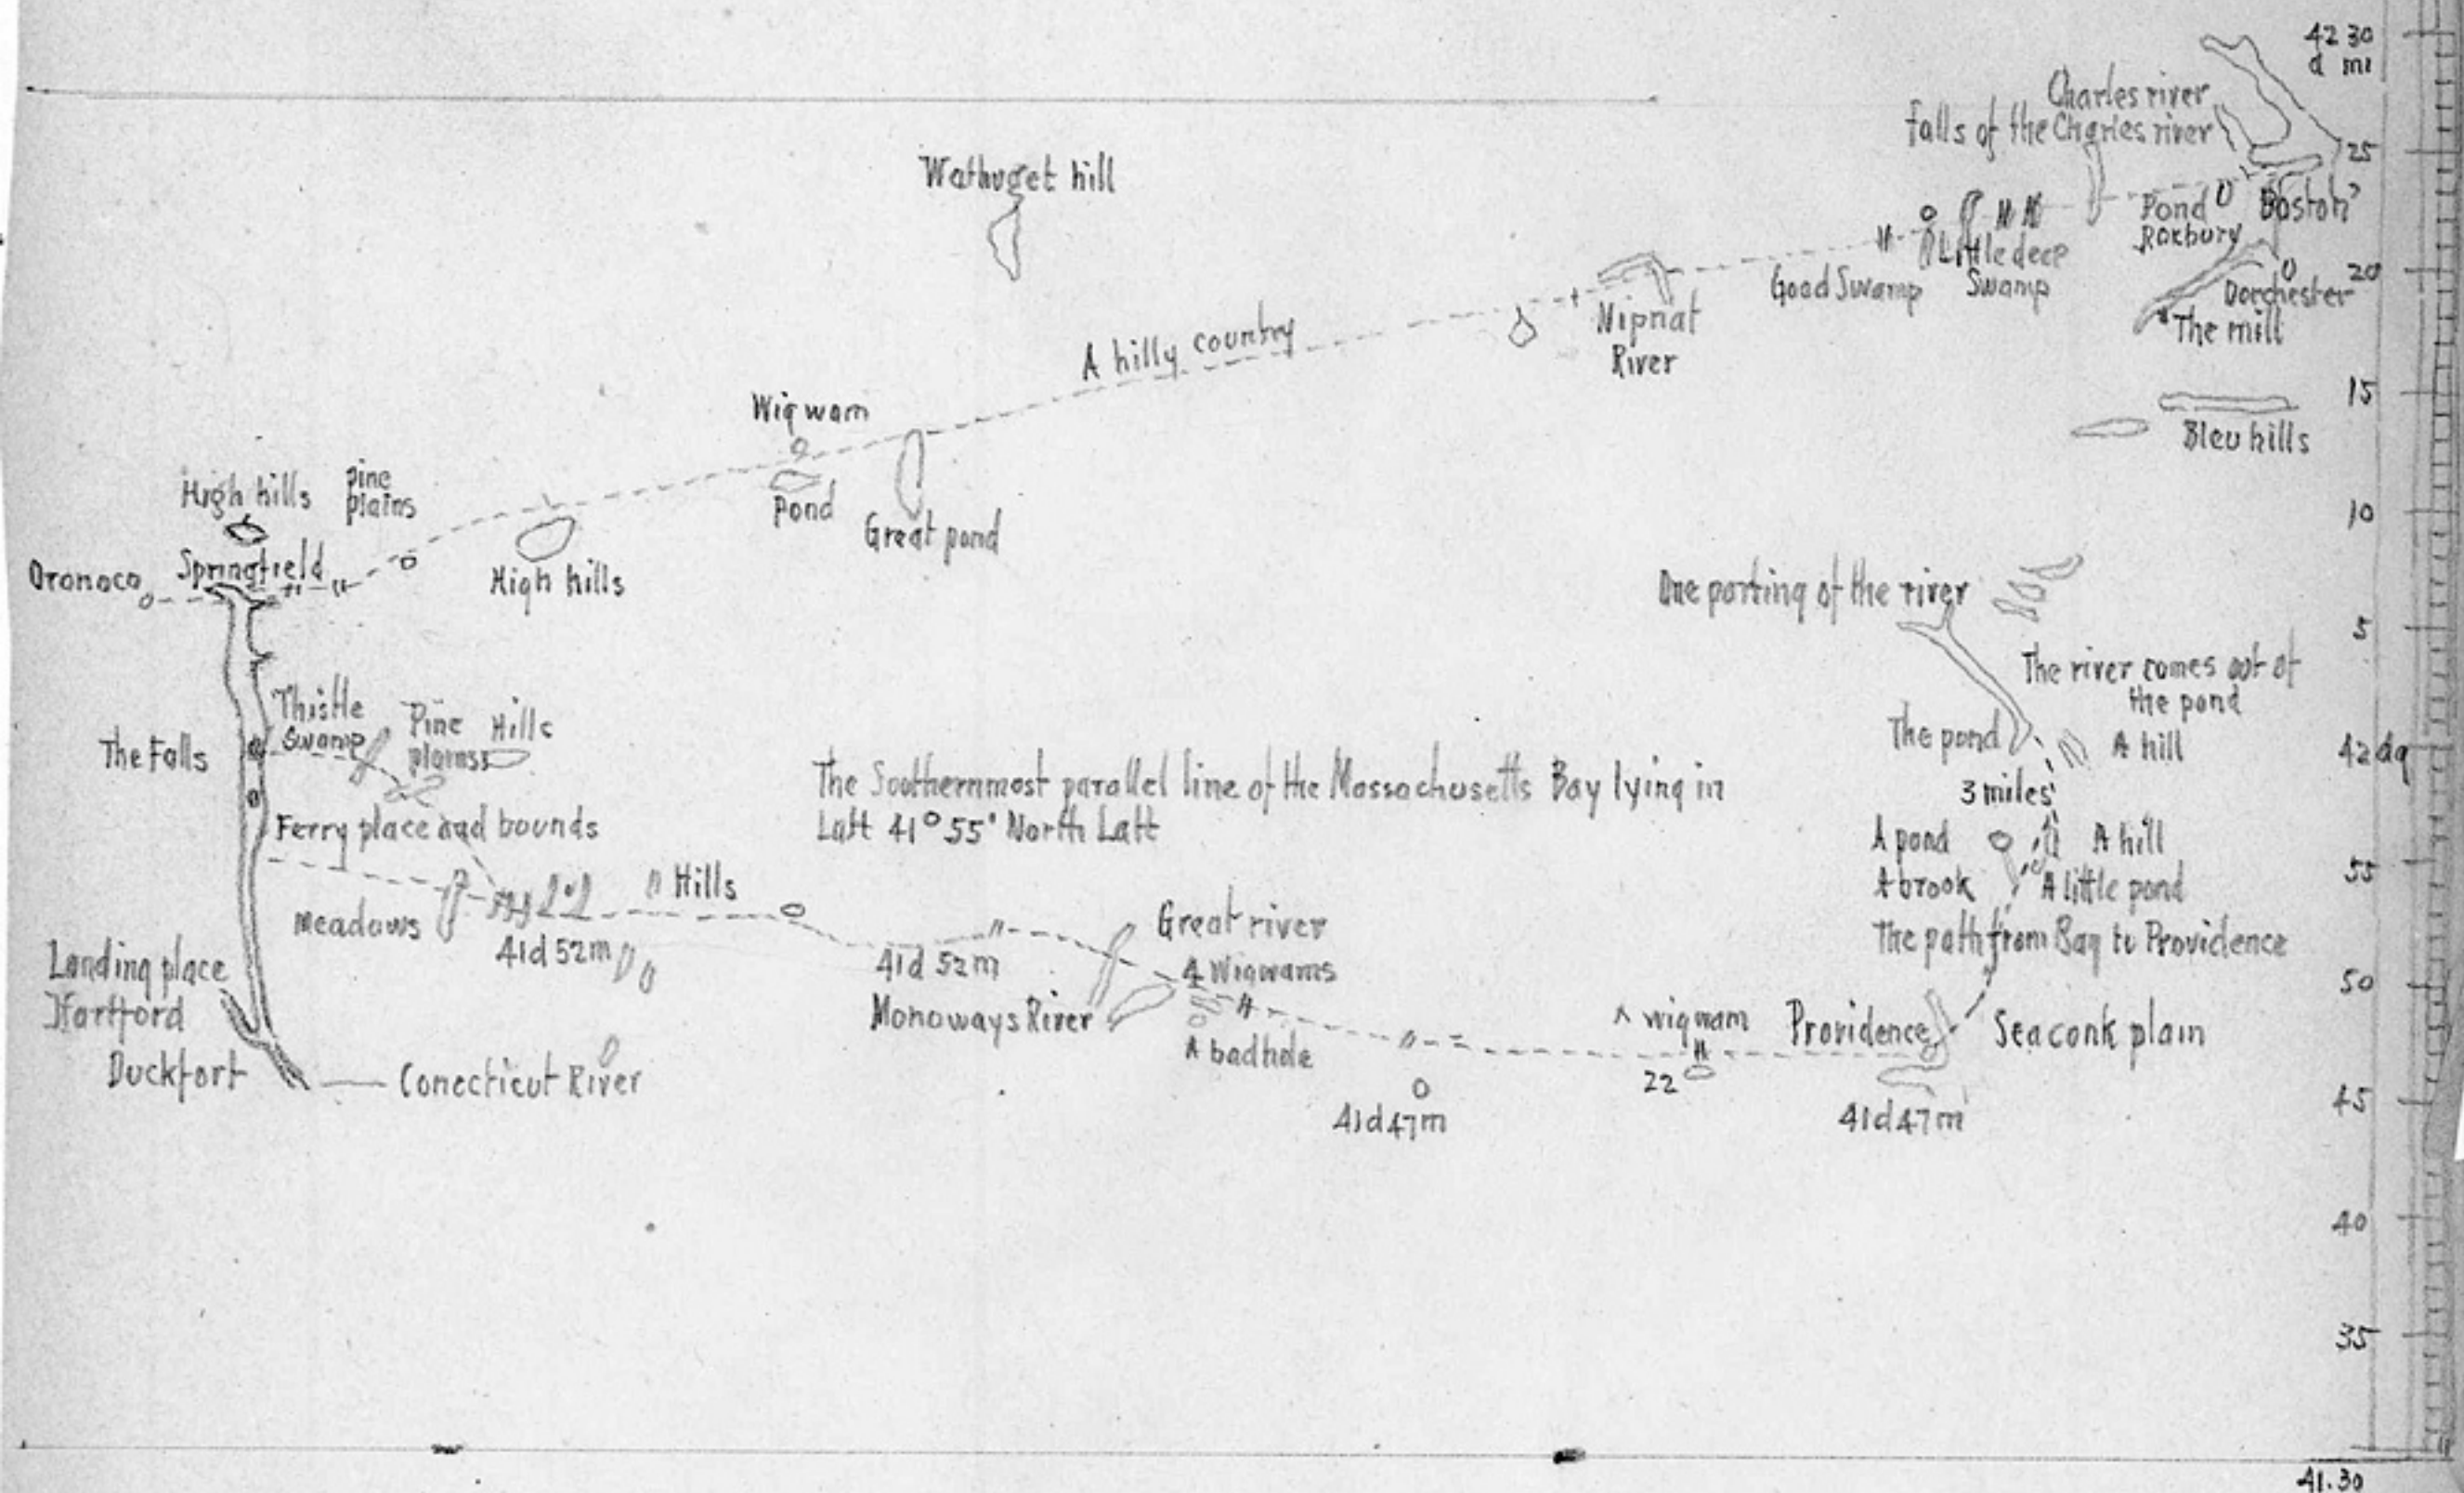 42 30
d mi
Charles river
falls of the Charles river
25
Wathuget hill
Pond
Boston
Roxbury
Little deep
Swamp
Good Swamp
20
Dorchester
The mill
Nipnat
River
A hilly country
15
Bleu hills
Wigwam
Pond
Great pond
High hills
pine
plains
10
Springfield
Oronoco
High hills
One parting of the river
5
The river comes out of
the pond
Thistle
Swamp
Pine
plains
Hills
The Falls
The pond
A hill
42 dg
3 miles
The Southernmost parallel line of the Massachusetts Bay lying in
Latt 41° 55' North Latt
Ferry place and bounds
A pond
A hill
A brook
A little pond
55
Hills
Meadows
41d 52m
Great river
The path from Bay to Providence
Landing place
41d 52m
4 Wigwams
50
Hartford
Monoways River
A wigwam
Providence
Seaconk plain
Duckfort
Conecticut River
A bad hole
22
45
41d47m
41d47m
40
35
41.30